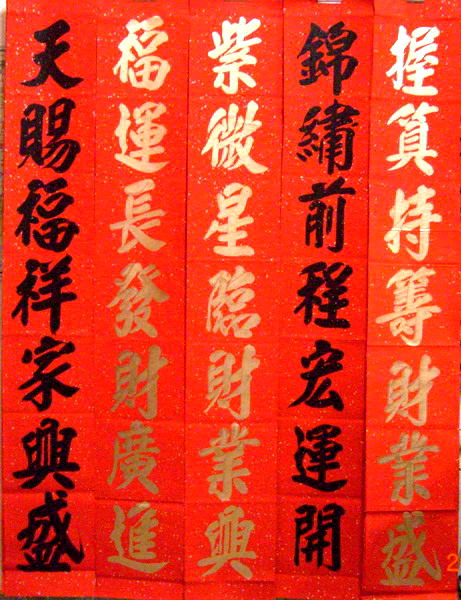 握算持籌財業盛
錦繡前程宏運開
紫微星臨財業興
福運長發財廣進
天賜福祥家興盛
2